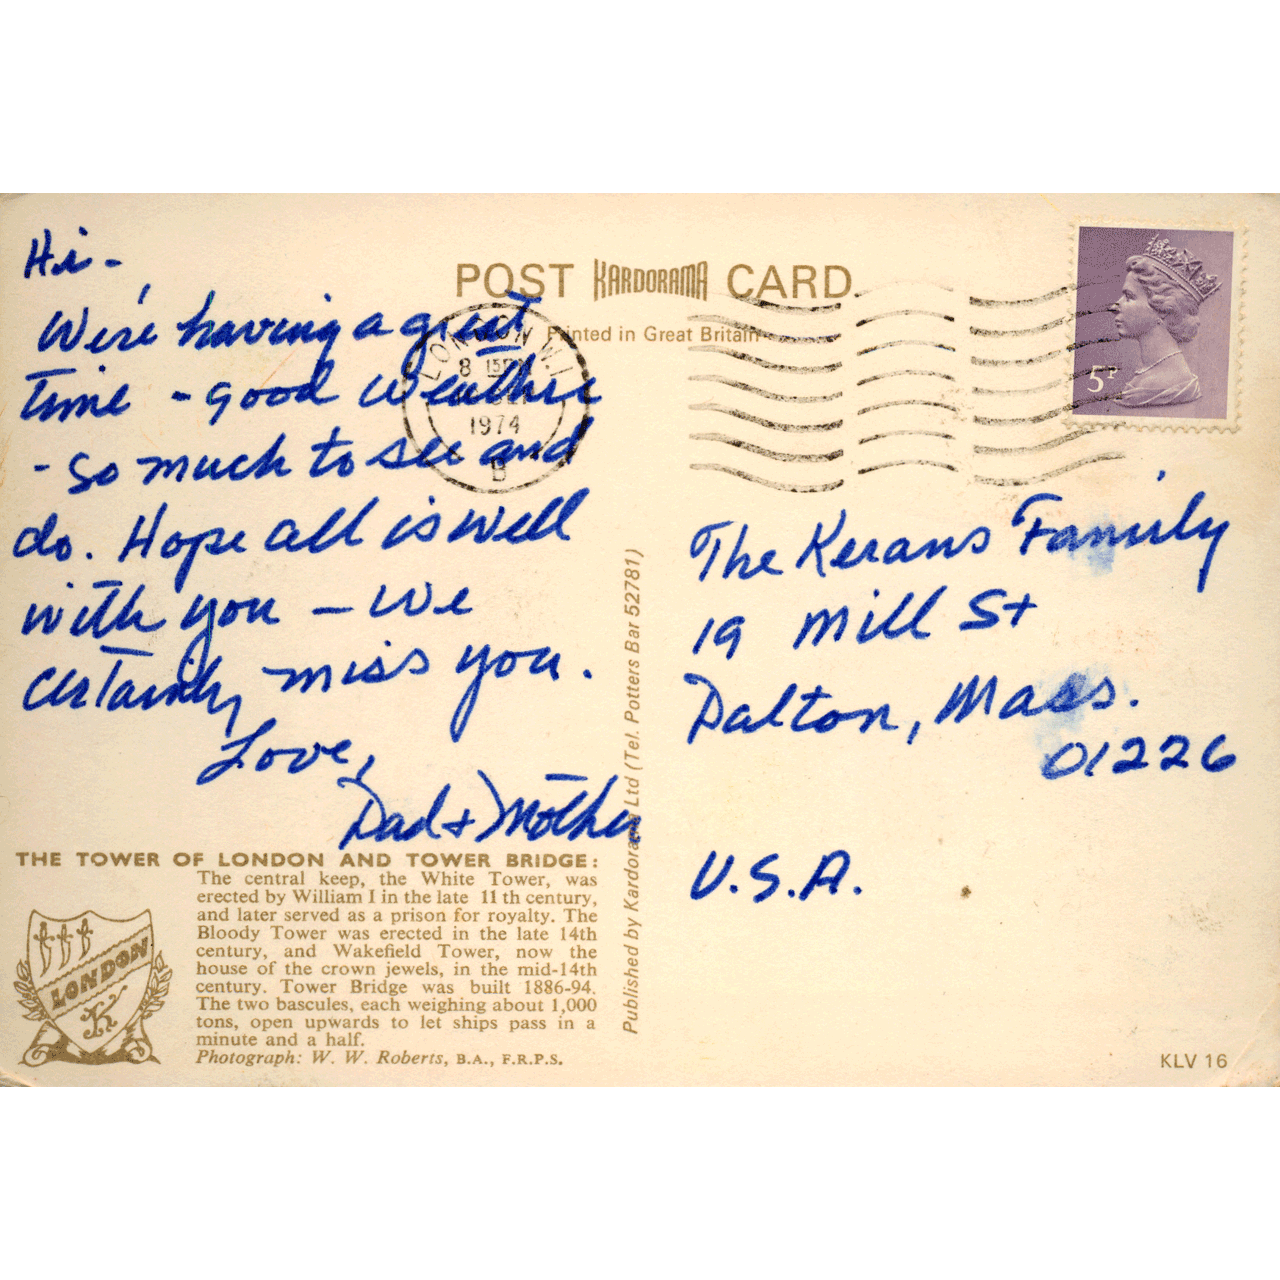 Hi -
We're having a great
time - good weather
- so much to see and
do. Hope all is well
with you - we
certainly miss you.
Love,
Dad + Mother
POST KARDORAMA CARD
Printed in Great Britain
LONDON W.1
8
1974
B
5P
The Kerans Family
19 Mill St
Dalton, Mass.
01226
U.S.A.
Published by Kardorama Ltd (Tel. Potters Bar 52781)
THE TOWER OF LONDON AND TOWER BRIDGE:
The central keep, the White Tower, was
erected by William I in the late 11th century,
and later served as a prison for royalty. The
Bloody Tower was erected in the late 14th
century, and Wakefield Tower, now the
house of the crown jewels, in the mid-14th
century. Tower Bridge was built 1886-94.
The two bascules, each weighing about 1,000
tons, open upwards to let ships pass in a
minute and a half.
Photograph: W. W. Roberts, B.A., F.R.P.S.
LONDON
K
KLV 16